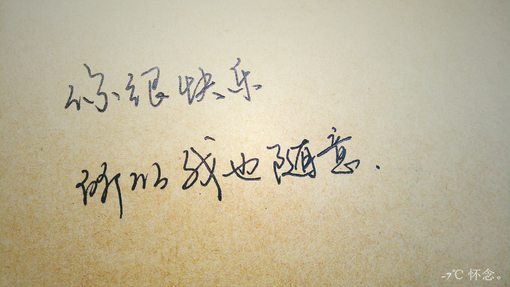 你很快乐
所以我也随意.
-7℃ 怀念。